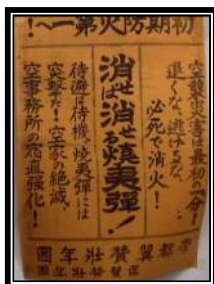 初期防火第一へ!
空襲火害は最初の一分!
退くな、逃げるな、
必死で消火!
消せば消せる焼夷弾!
待避は待機、焼夷弾には
突撃だ!空家の絶滅、
空事務所の宿直強化!
京都翼賛壮年團
区翼賛壮年團